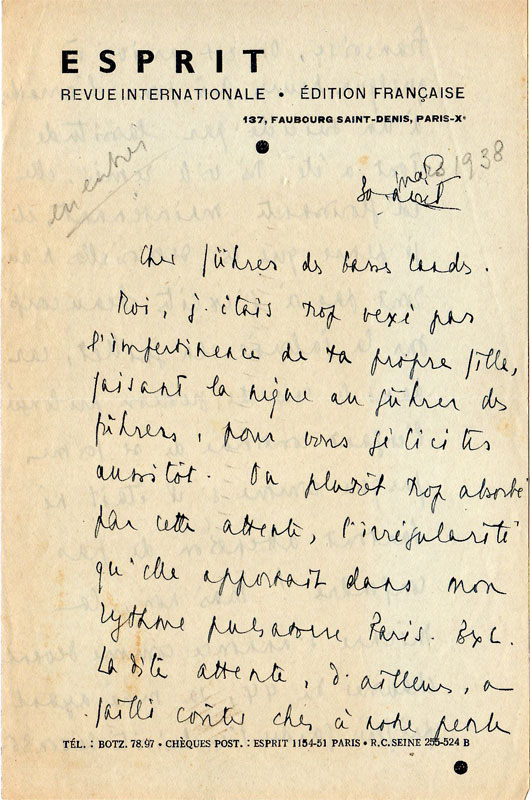 ESPRIT
REVUE INTERNATIONALE • ÉDITION FRANÇAISE
137, FAUBOURG SAINT-DENIS, PARIS-Xᵉ
mars 1938
Cher führer des basses lands.
Moi, j'étais trop vexé par
l'impertinence de ta propre fille,
faisant la nique au führer des
führers, pour vous féliciter
aussitôt. Ou plutôt trop absorbé
par cette attente, l'irrégularité
qu'elle apportait dans mon
rythme Paris. BxL.
La dite attente, d'ailleurs, a
failli coûter cher à notre petite
TÉL. : BOTZ. 78.97 • CHÈQUES POST. : ESPRIT 1154-51 PARIS • R.C. SEINE 255-524 B